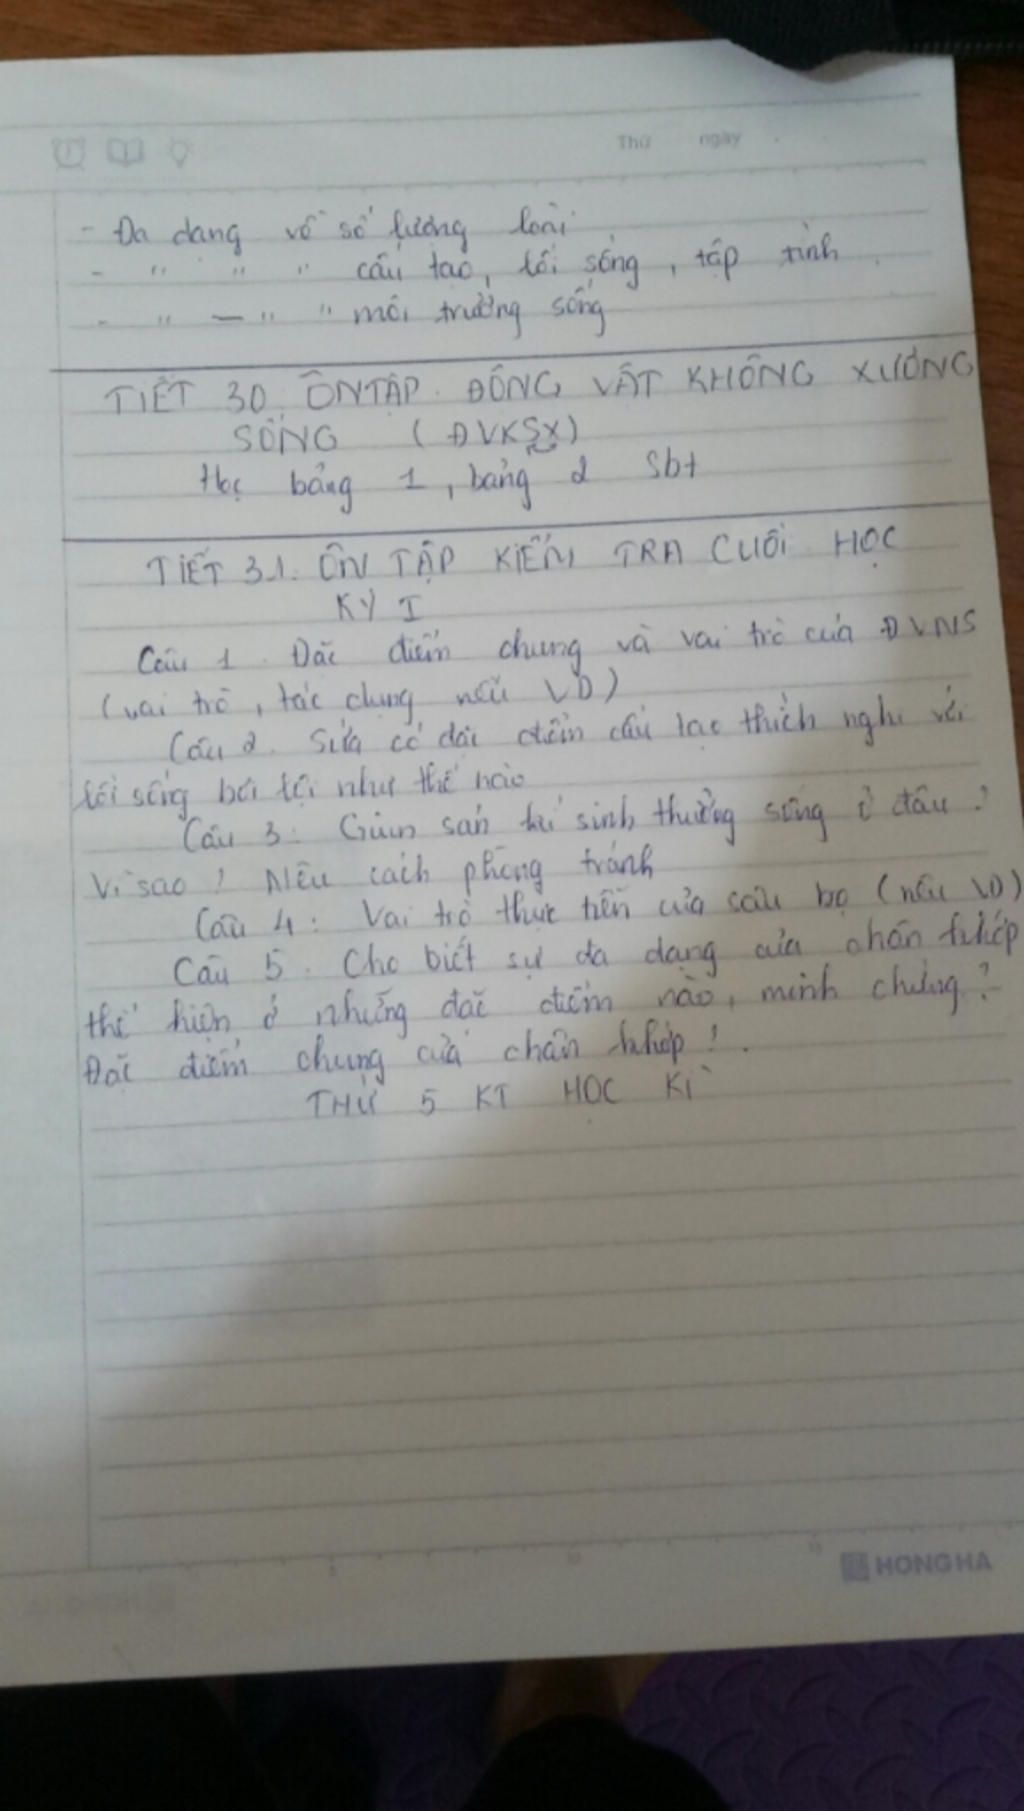 Thứ ngày
- Đa dạng về số lượng loài
- " " " cấu tạo, lối sống, tập tính
- " — " " môi trường sống
TIẾT 30. ÔN TẬP. ĐỘNG VẬT KHÔNG XƯƠNG
SỐNG (ĐVKSX)
Học bảng 1, bảng 2 Sbt
TIẾT 31. ÔN TẬP KIỂM TRA CUỐI HỌC
KỲ I
Câu 1. Đặc điểm chung và vai trò của ĐVNS
(vai trò, tác dụng nếu VD)
Câu 2. Sứa có đặc điểm cấu tạo thích nghi với
lối sống bơi lội như thế nào
Câu 3: Giun sán kí sinh thường sống ở đâu?
Vì sao? Nêu cách phòng tránh
Câu 4: Vai trò thực tiễn của sâu bọ (nếu VD)
Câu 5. Cho biết sự đa dạng của chân khớp
thể hiện ở những đặc điểm nào, minh chứng?
Đặc điểm chung của chân khớp?.
THỨ 5 KT HỌC KÌ
HONG HA